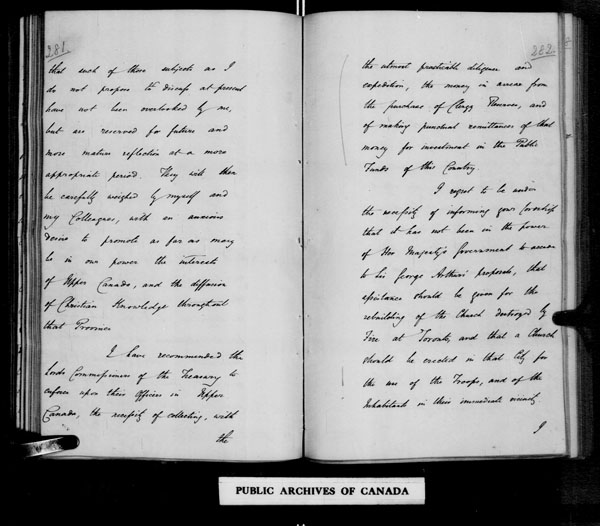 281.
that such of those subjects as I
do not propose to discuss at present
have not been overlooked by me,
but are reserved for future and
more mature reflection at a more
appropriate period. They will then
be carefully weighed by myself and
my Colleagues, with an anxious
desire to promote as far as may
be in our power the interests
of Upper Canada, and the diffusion
of Christian Knowledge throughout
that Province.
I have recommended the
Lords Commissioners of the Treasury to
enforce upon their Officers in Upper
Canada, the necessity of collecting, with
the
282.
the utmost practicable diligence and
expedition, the money in arrear from
the purchases of Clergy Reserves, and
of making punctual remittances of that
money for investment in the Public
Funds of this Country.
I regret to be under
the necessity of informing your Lordship
that it has not been in the power
of Her Majesty's Government to accede
to Sir George Arthur's proposals, that
assistance should be given for the
rebuilding of the Church destroyed by
Fire at Toronto, and that a Church
should be erected in that City for
the use of the Troops, and of the
Inhabitants in their immediate vicinity
I
PUBLIC ARCHIVES OF CANADA